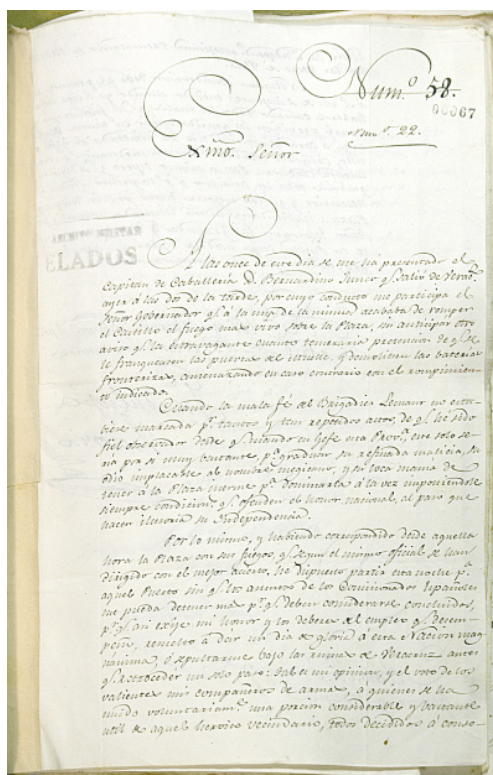 Num.º 58.
00067
Num.º 22.
Exmô. Señor
ARCHIVO MILITAR
ELADOS
A las once de este dia se me ha presentado el
Capitan de Caballeria D. Bernardino Junco q.e salió de Verac.
ayer á las dos de la tarde, por cuyo conducto me participa el
Señor Gobernador q.e á la una de la misma acababa de romper
el Castillo el fuego mas vivo sobre la Plaza, sin anticipar otro
aviso q.e la extravagante cuanto temeraria pretencion de q.e se
le franqueasen las puertas de muelle, y demoliesen las baterias
fronterizas, amenazando en caso contrario con el rompimien-
to indicado.
Cuando la mala fé del Brigadier Lemaur no estu-
biese marcada p.r tantos y tan repetidos actos, de q.e hé sido
fiel observador desde q.e mando en Gefe esta Prov.a, este solo se-
ria por sí muy bastante, p.a graduar su refinada malicia, su
odio implacable al nombre megicano, y su loca mania de
tener á la Plaza inerme p.a dominarla á la vez imponiendole
siempre condiciones, q.e ofenden el honor nacional, al paso que
hacen ilusoria su Independencia.
Por lo mismo, y habiendo correspondido desde aquella
hora la Plaza con sus fuegos, q.e segun el mismo oficial se han
dirigido con el mejor acierto, he dispuesto partir esta noche p.a
aquel Puerto sin q.e los asuntos de los Comisionados Españoles
me pueda detener mas p.r q.e deben considerarse concluidos,
p.r q.e asi exije mi honor y los deberes del empleo q.e desem-
peño, resuelto á dar un dia de gloria á esta Nacion mag-
nánima, ó sepultarme bajo las ruinas de Veracruz antes
q.e retroceder un solo paso: tal es mi opinion, y el voto de los
valientes mis compañeros de armas, á quienes se ha
unido voluntariam.te una porcion considerable y bastante
util de aquel heroico vecindario, todos decididos á conse-